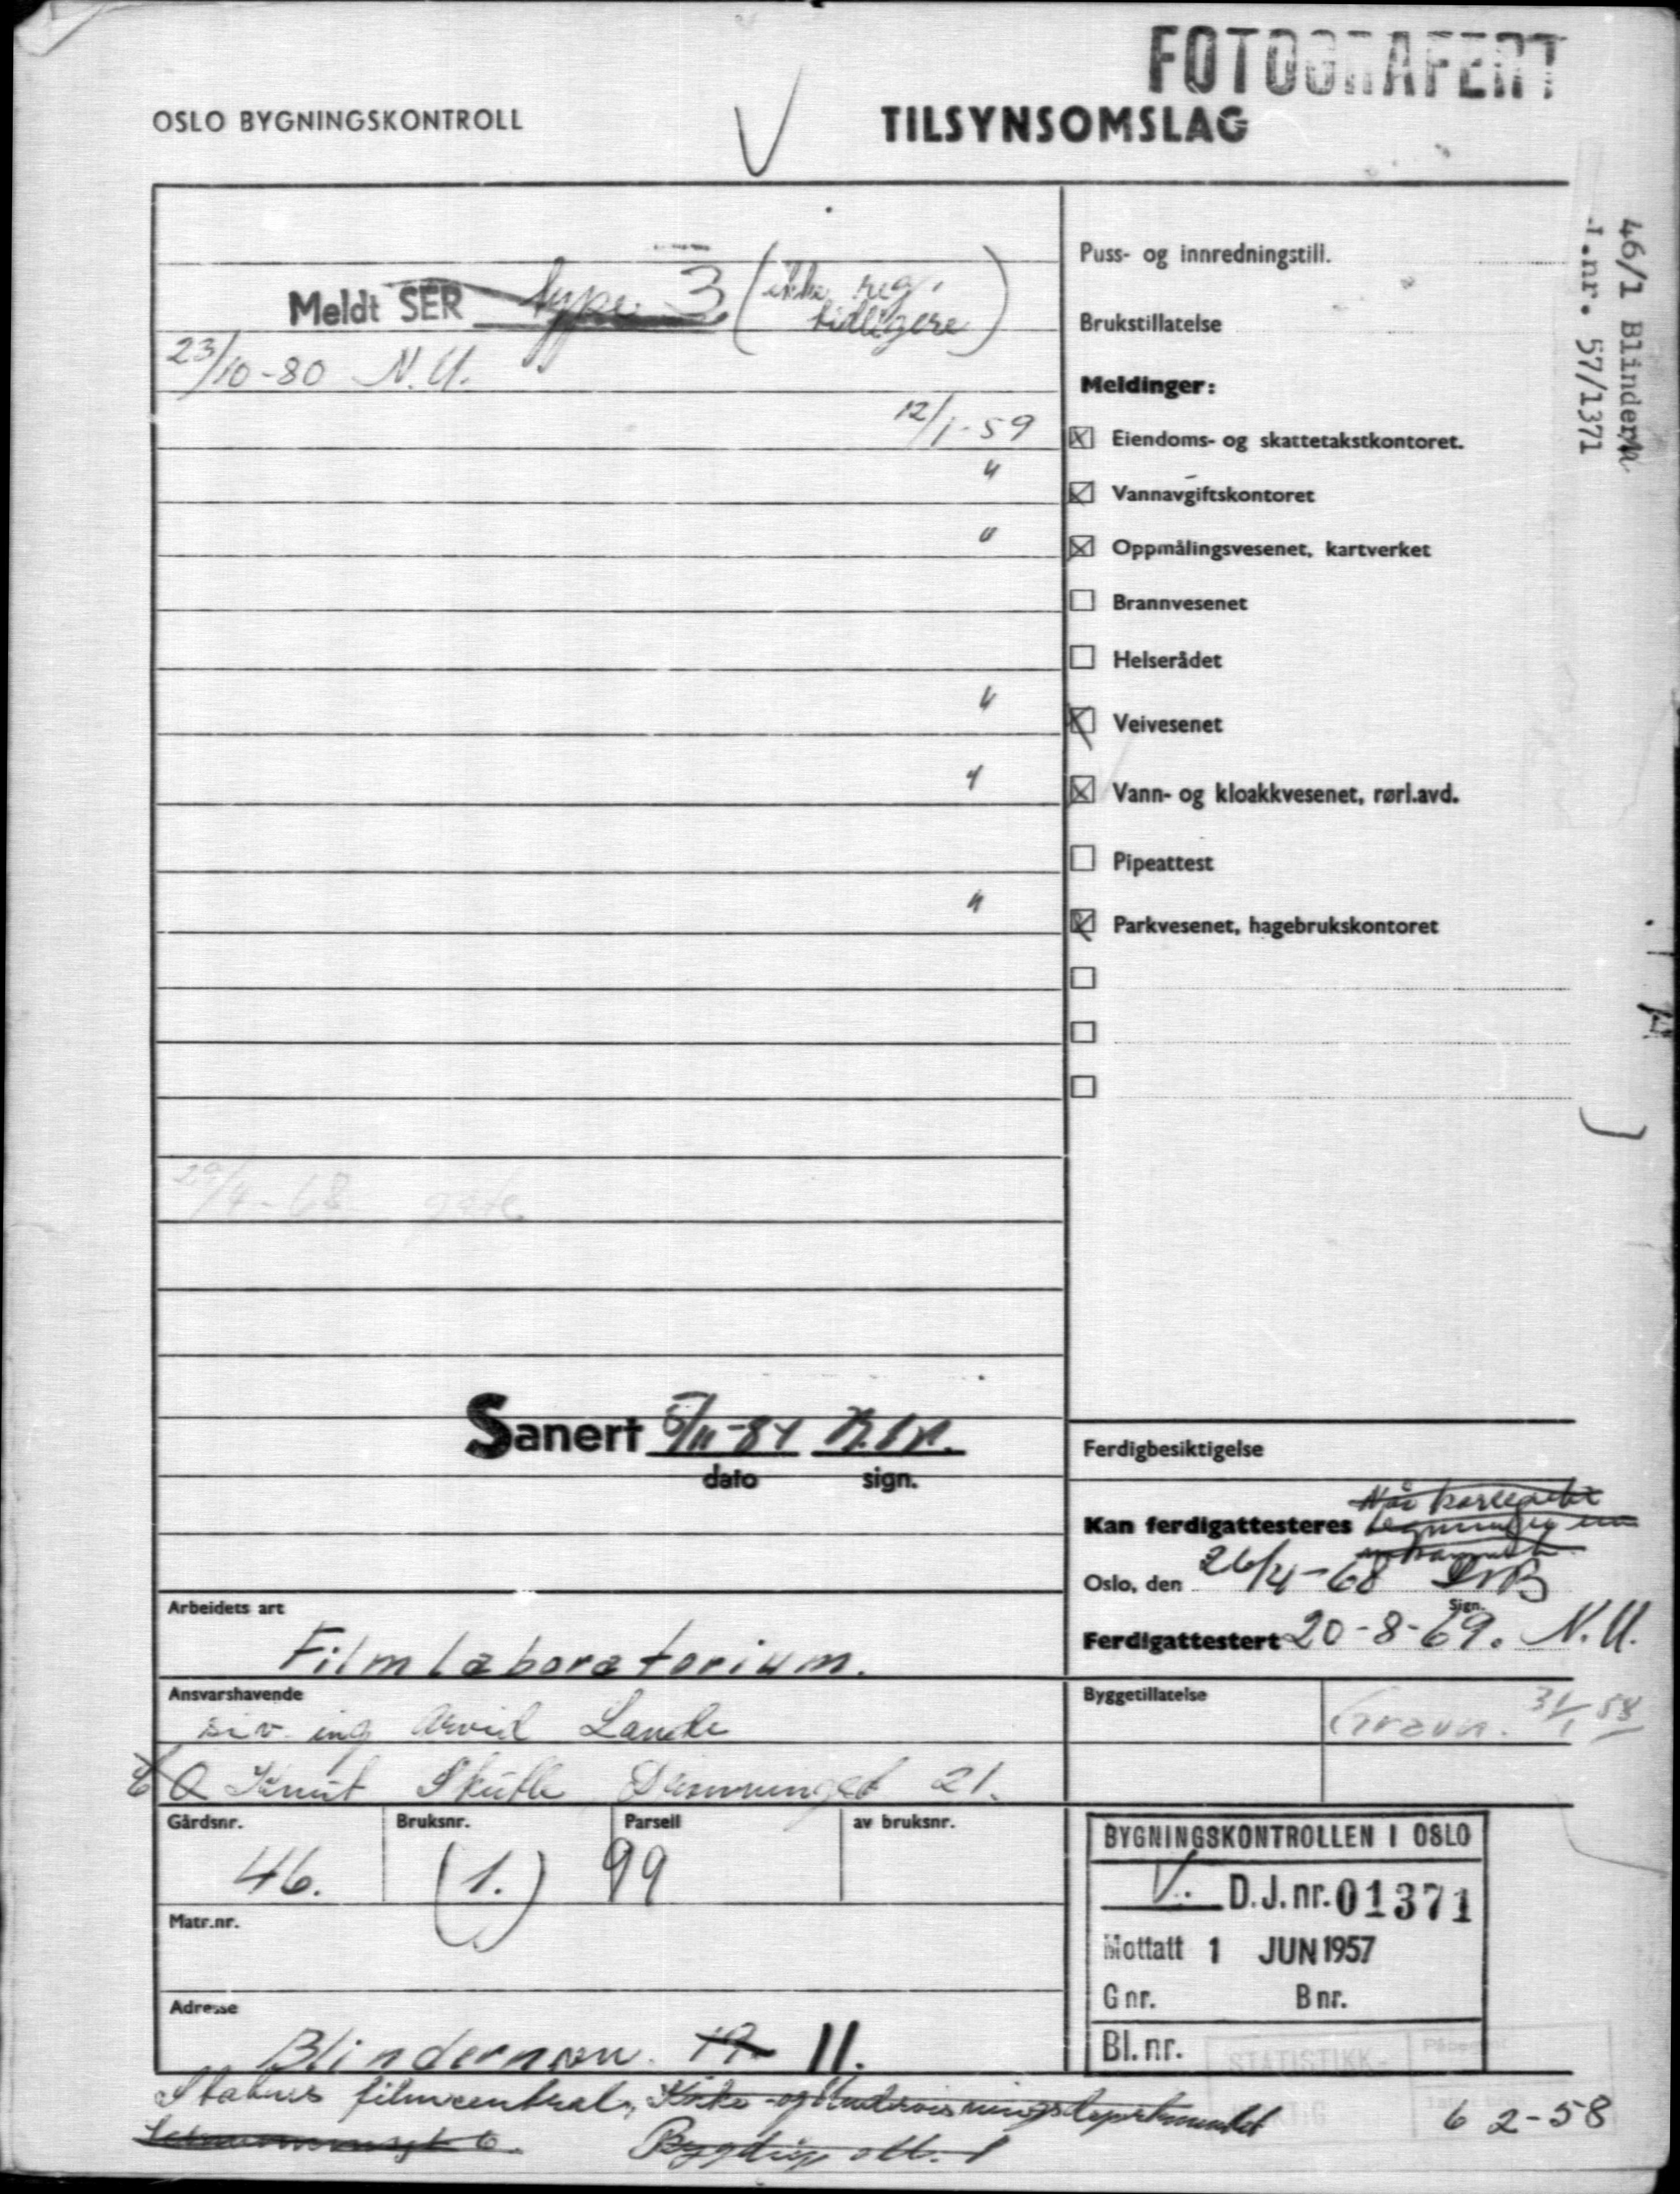 FOTOGRAFERT
OSLO BYGNINGSKONTROLL
TILSYNSOMSLAG
46/1 Blindern
J.nr. 57/1371
Meldt SER type 3 (ikke reg. tidligere)
23/10-80 N.U.
Puss- og innredningstill.
Brukstillatelse
Meldinger:
12/1-59 Eiendoms- og skattetakstkontoret.
" Vannavgiftskontoret
" Oppmålingsvesenet, kartverket
Brannvesenet
Helserådet
" Veivesenet
" Vann- og kloakkvesenet, rørl.avd.
Pipeattest
" Parkvesenet, hagebrukskontoret
29/4-68
Sanert 5/11-84
dato sign.
Ferdigbesiktigelse
Kan ferdigattesteres
Oslo, den 26/4-68
Sign.
Ferdigattestert 20-8-69. N.U.
Arbeidets art
Filmlaboratorium.
Ansvarshavende
siv. ing Arvid Lande
Knut Skutle 21.
Byggetillatelse
Gravn. 31/1 58
Gårdsnr. Bruksnr. Parsell av bruksnr.
46. (1.) 99
Matr.nr.
Adresse
Blindernvn. 19. 11.
BYGNINGSKONTROLLEN I OSLO
V. D.J.nr. 01371
Mottatt 1 JUN 1957
G nr. B nr.
Bl. nr.
STATISTIKK-
Statens filmsentral, Kirke- og Undervisningsdepartementet
6 2-58